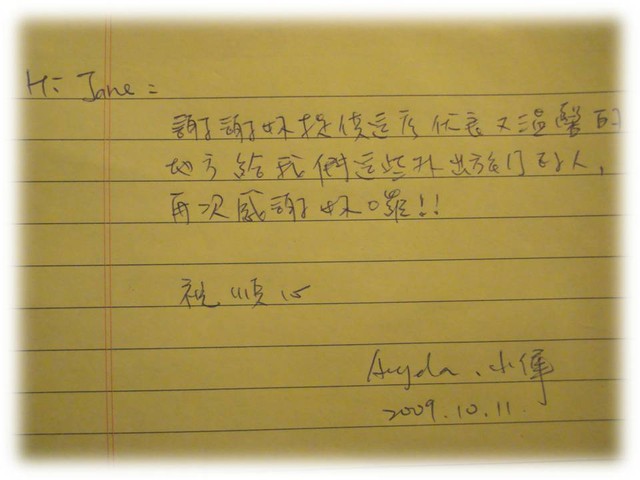 Hi Jane:
謝謝妳提供這麼優良又溫馨的
地方給我們這些外出旅行的人,
再次感謝妳囉!!
祝 順心
小偉
2009.10.11.